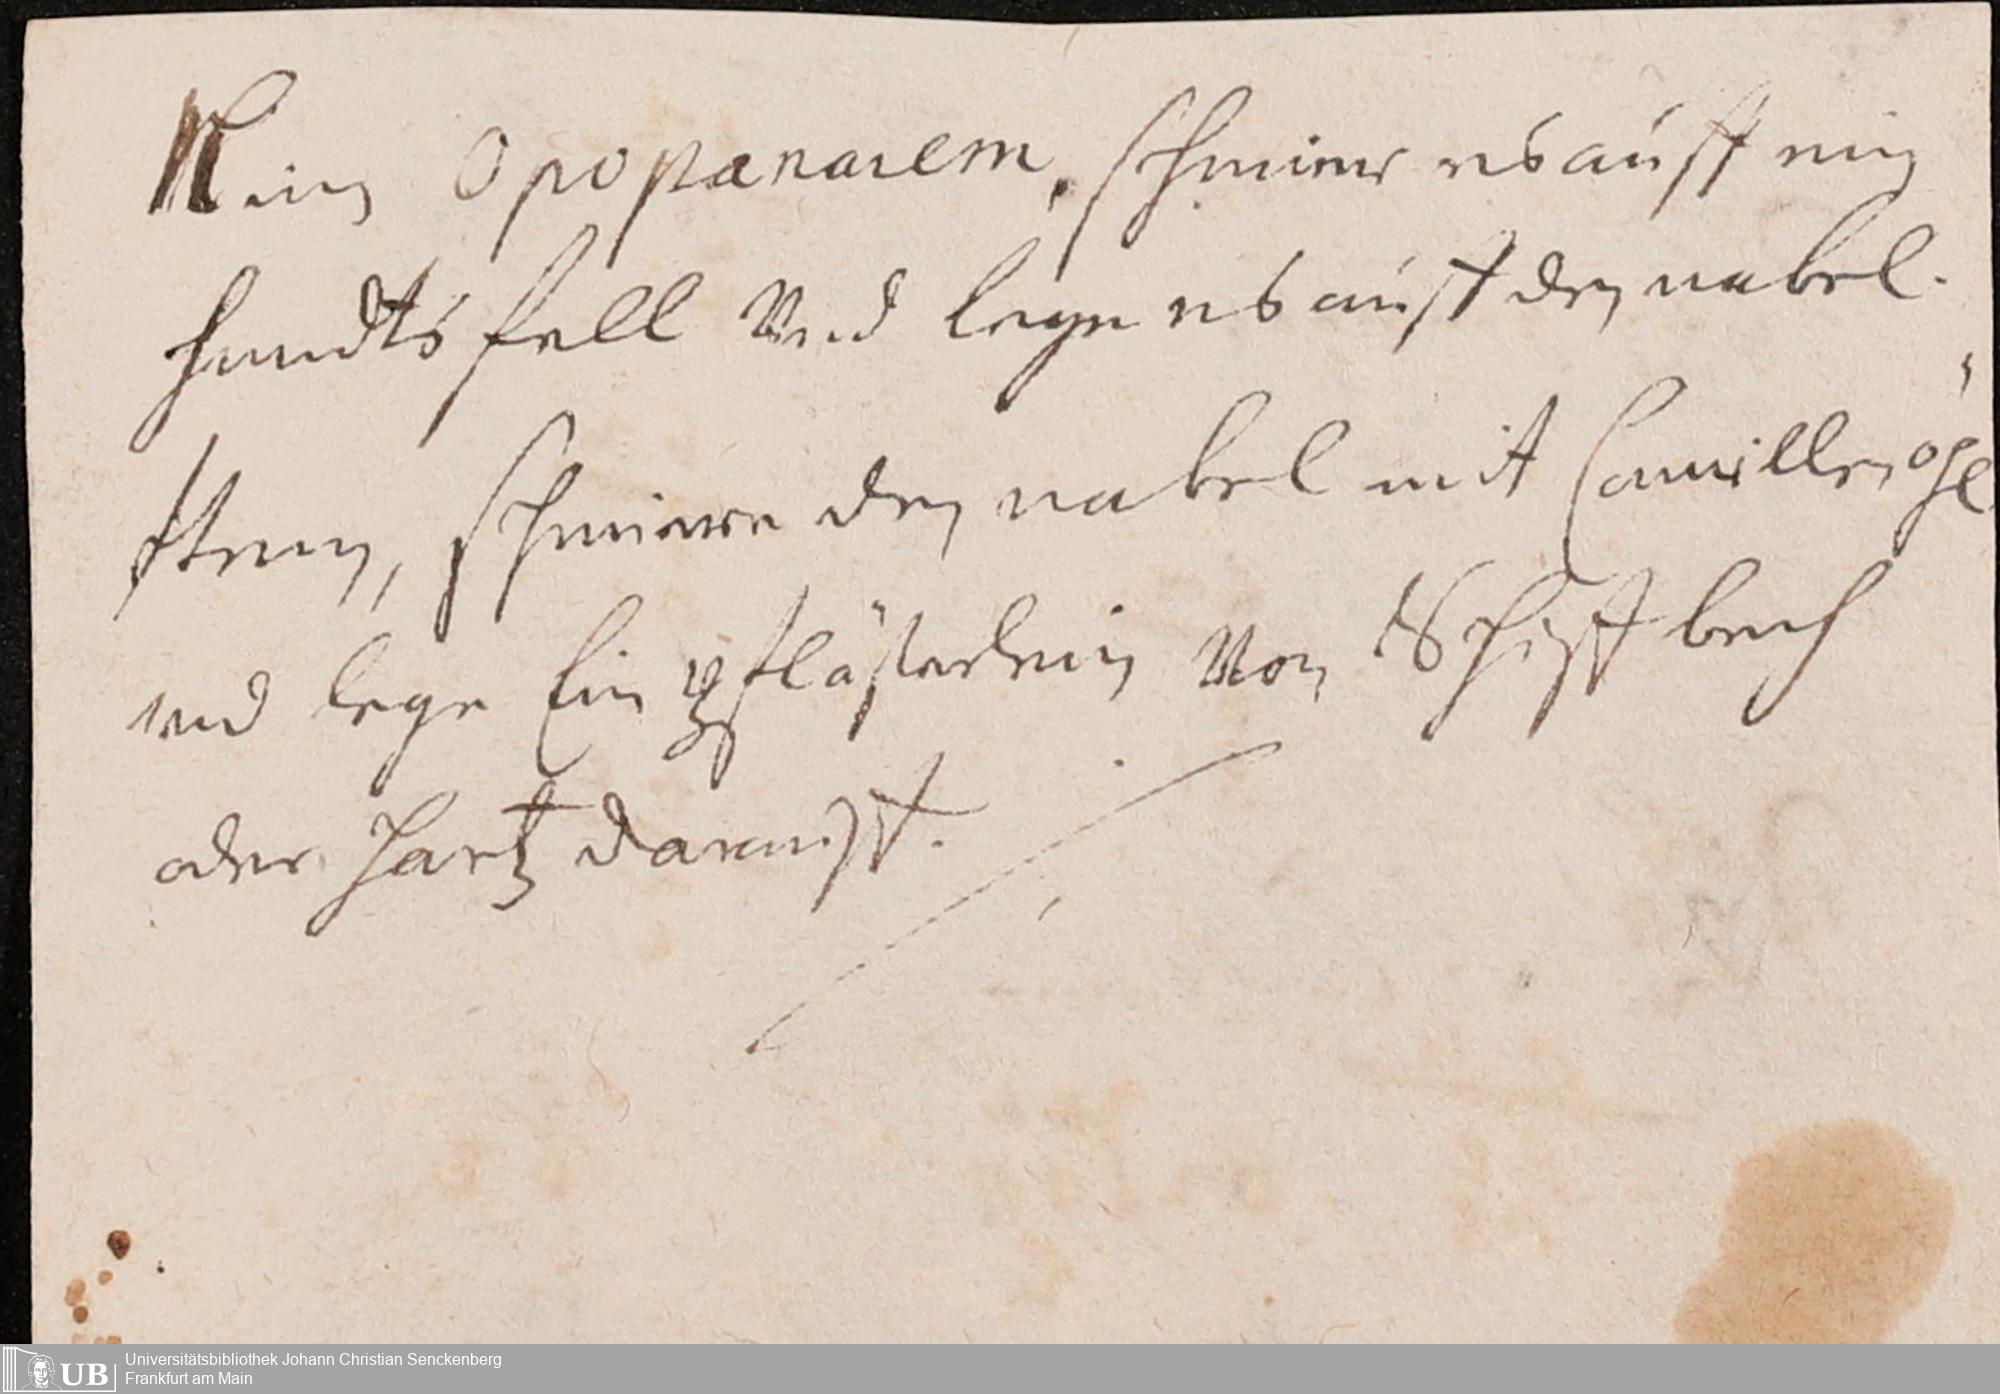 Nim opopanacem, schmier es auff ein
hundtsfell Vnd lege es auff den nabel.
Item, schmiere den nabel mit Camillen öhl
vnd lege Ein pflästerlein Von Schiffbech
oder Hartz darauff.
Universitätsbibliothek Johann Christian Senckenberg
UB
Frankfurt am Main